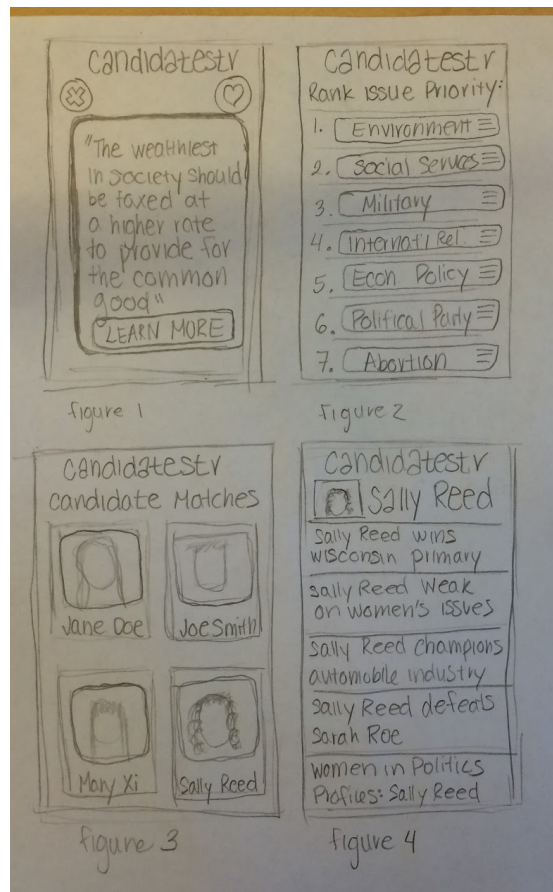 candidatestr
"The wealthiest
in society should
be taxed at
a higher rate
to provide for
the common
good"
LEARN MORE
figure 1
candidatestr
Rank Issue Priority:
1. Environment
2. Social Services
3. Military
4. Internat'l Rel.
5. Econ. Policy
6. Political Party
7. Abortion
figure 2
candidatestr
candidate Matches
Jane Doe
Joe Smith
Mary Xi
Sally Reed
figure 3
candidatestr
Sally Reed
Sally Reed wins
wisconsin primary
Sally Reed weak
on women's issues
Sally Reed champions
automobile industry
Sally Reed defeats
Sarah Roe
women in Politics
Profiles: Sally Reed
figure 4